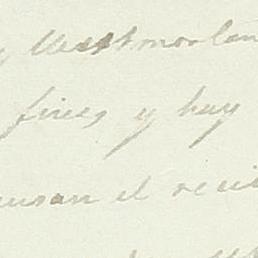 y Westmorlan
fines y hay
ausan el reci